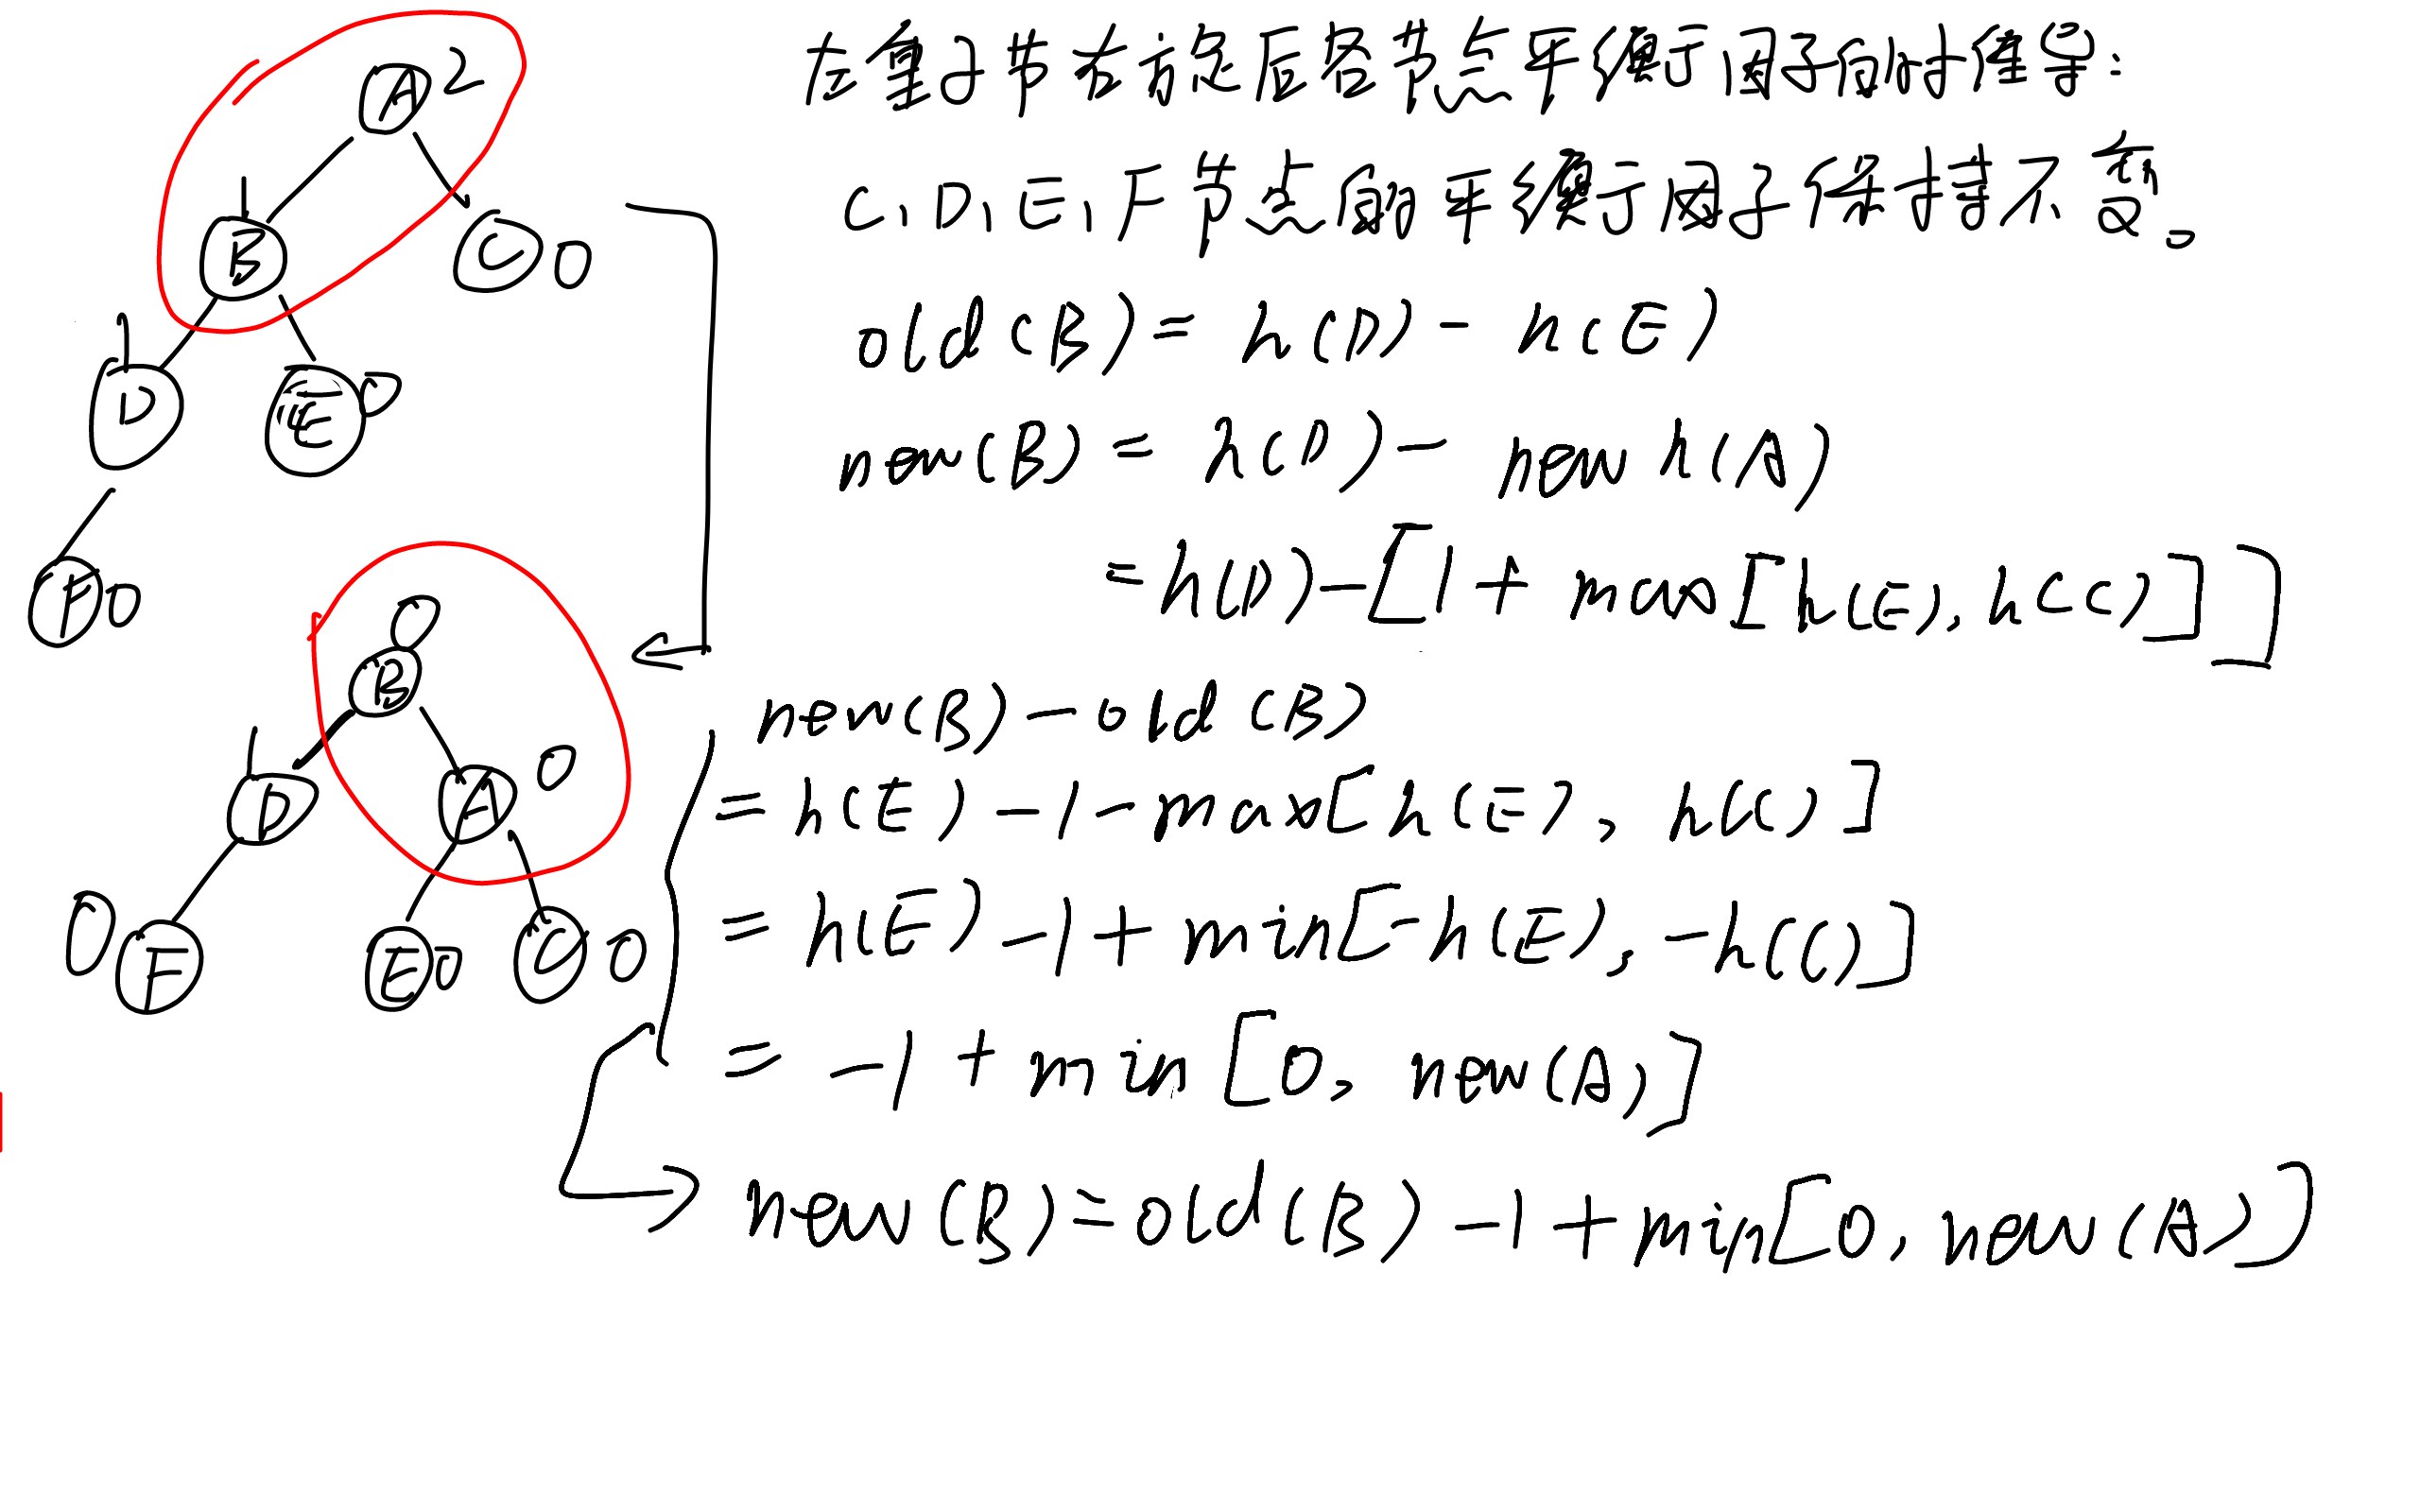 A 2
1
B
C 0
1
D
E 0
F 0
0
B
1
D
A 0
0
F
E 0
C 0
左重子节右旋后各节点平衡因子的推导:
C, D, E, F 节点的平衡因子保持不变。
old(B) = h(D) - h(E)
new(B) = h(D) - new h(A)
= h(D) - [1 + max[h(E), h(C)]]
new(B) - old(B)
= h(E) - 1 - max[h(E), h(C)]
= h(E) - 1 + min[-h(E), -h(C)]
= -1 + min[0, new(A)]
new(B) = old(B) - 1 + min[0, new(A)]